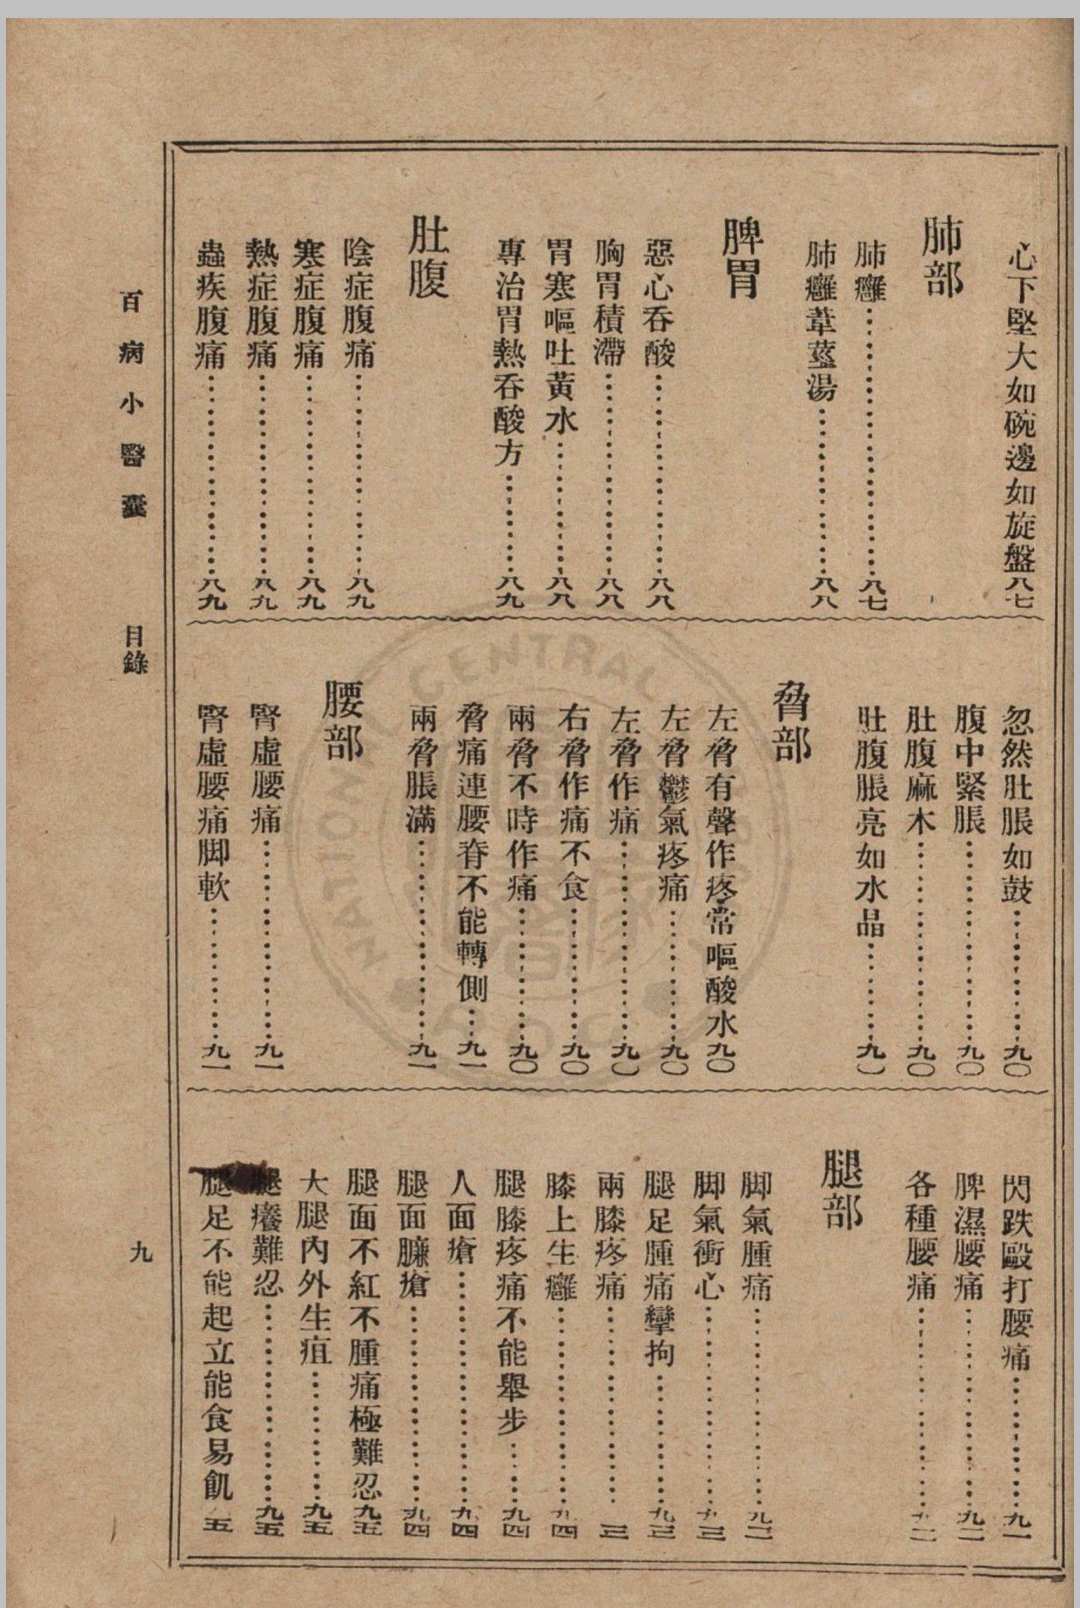 心下堅大如碗邊如旋盤八七
肺部
肺癰…………八七
肺癰葦莖湯…………八八
脾胃
惡心吞酸…………八八
胸胃積滯…………八八
胃寒嘔吐黃水…………八八
專治胃熱吞酸方…………八九
肚腹
陰症腹痛…………八九
寒症腹痛…………八九
熱症腹痛…………八九
蟲疾腹痛…………八九
忽然肚脹如鼓…………九〇
腹中緊脹…………九〇
肚腹麻木…………九〇
肚腹脹亮如水晶…………九〇
脅部
左脅有聲作疼常嘔酸水九〇
左脅鬱氣疼痛…………九〇
左脅作痛…………九〇
右脅作痛不食…………九〇
兩脅不時作痛…………九〇
脅痛連腰脊不能轉側…九一
兩脅脹滿…………九一
腰部
腎虛腰痛…………九一
腎虛腰痛脚軟…………九一
閃跌毆打腰痛…………九一
脾濕腰痛…………九二
各種腰痛…………九二
腿部
脚氣腫痛…………九二
脚氣衝心…………九三
腿足腫痛攣拘…………九三
兩膝疼痛…………三
膝上生癰…………九四
腿膝疼痛不能舉步……九四
人面瘡…………九四
腿面臁瘡…………九四
腿面不紅不腫痛極難忍九五
大腿內外生疽…………九五
腿癢難忍…………九五
腿足不能起立能食易飢 五
百病小醫囊 目錄 九
NATIONAL CENTRAL